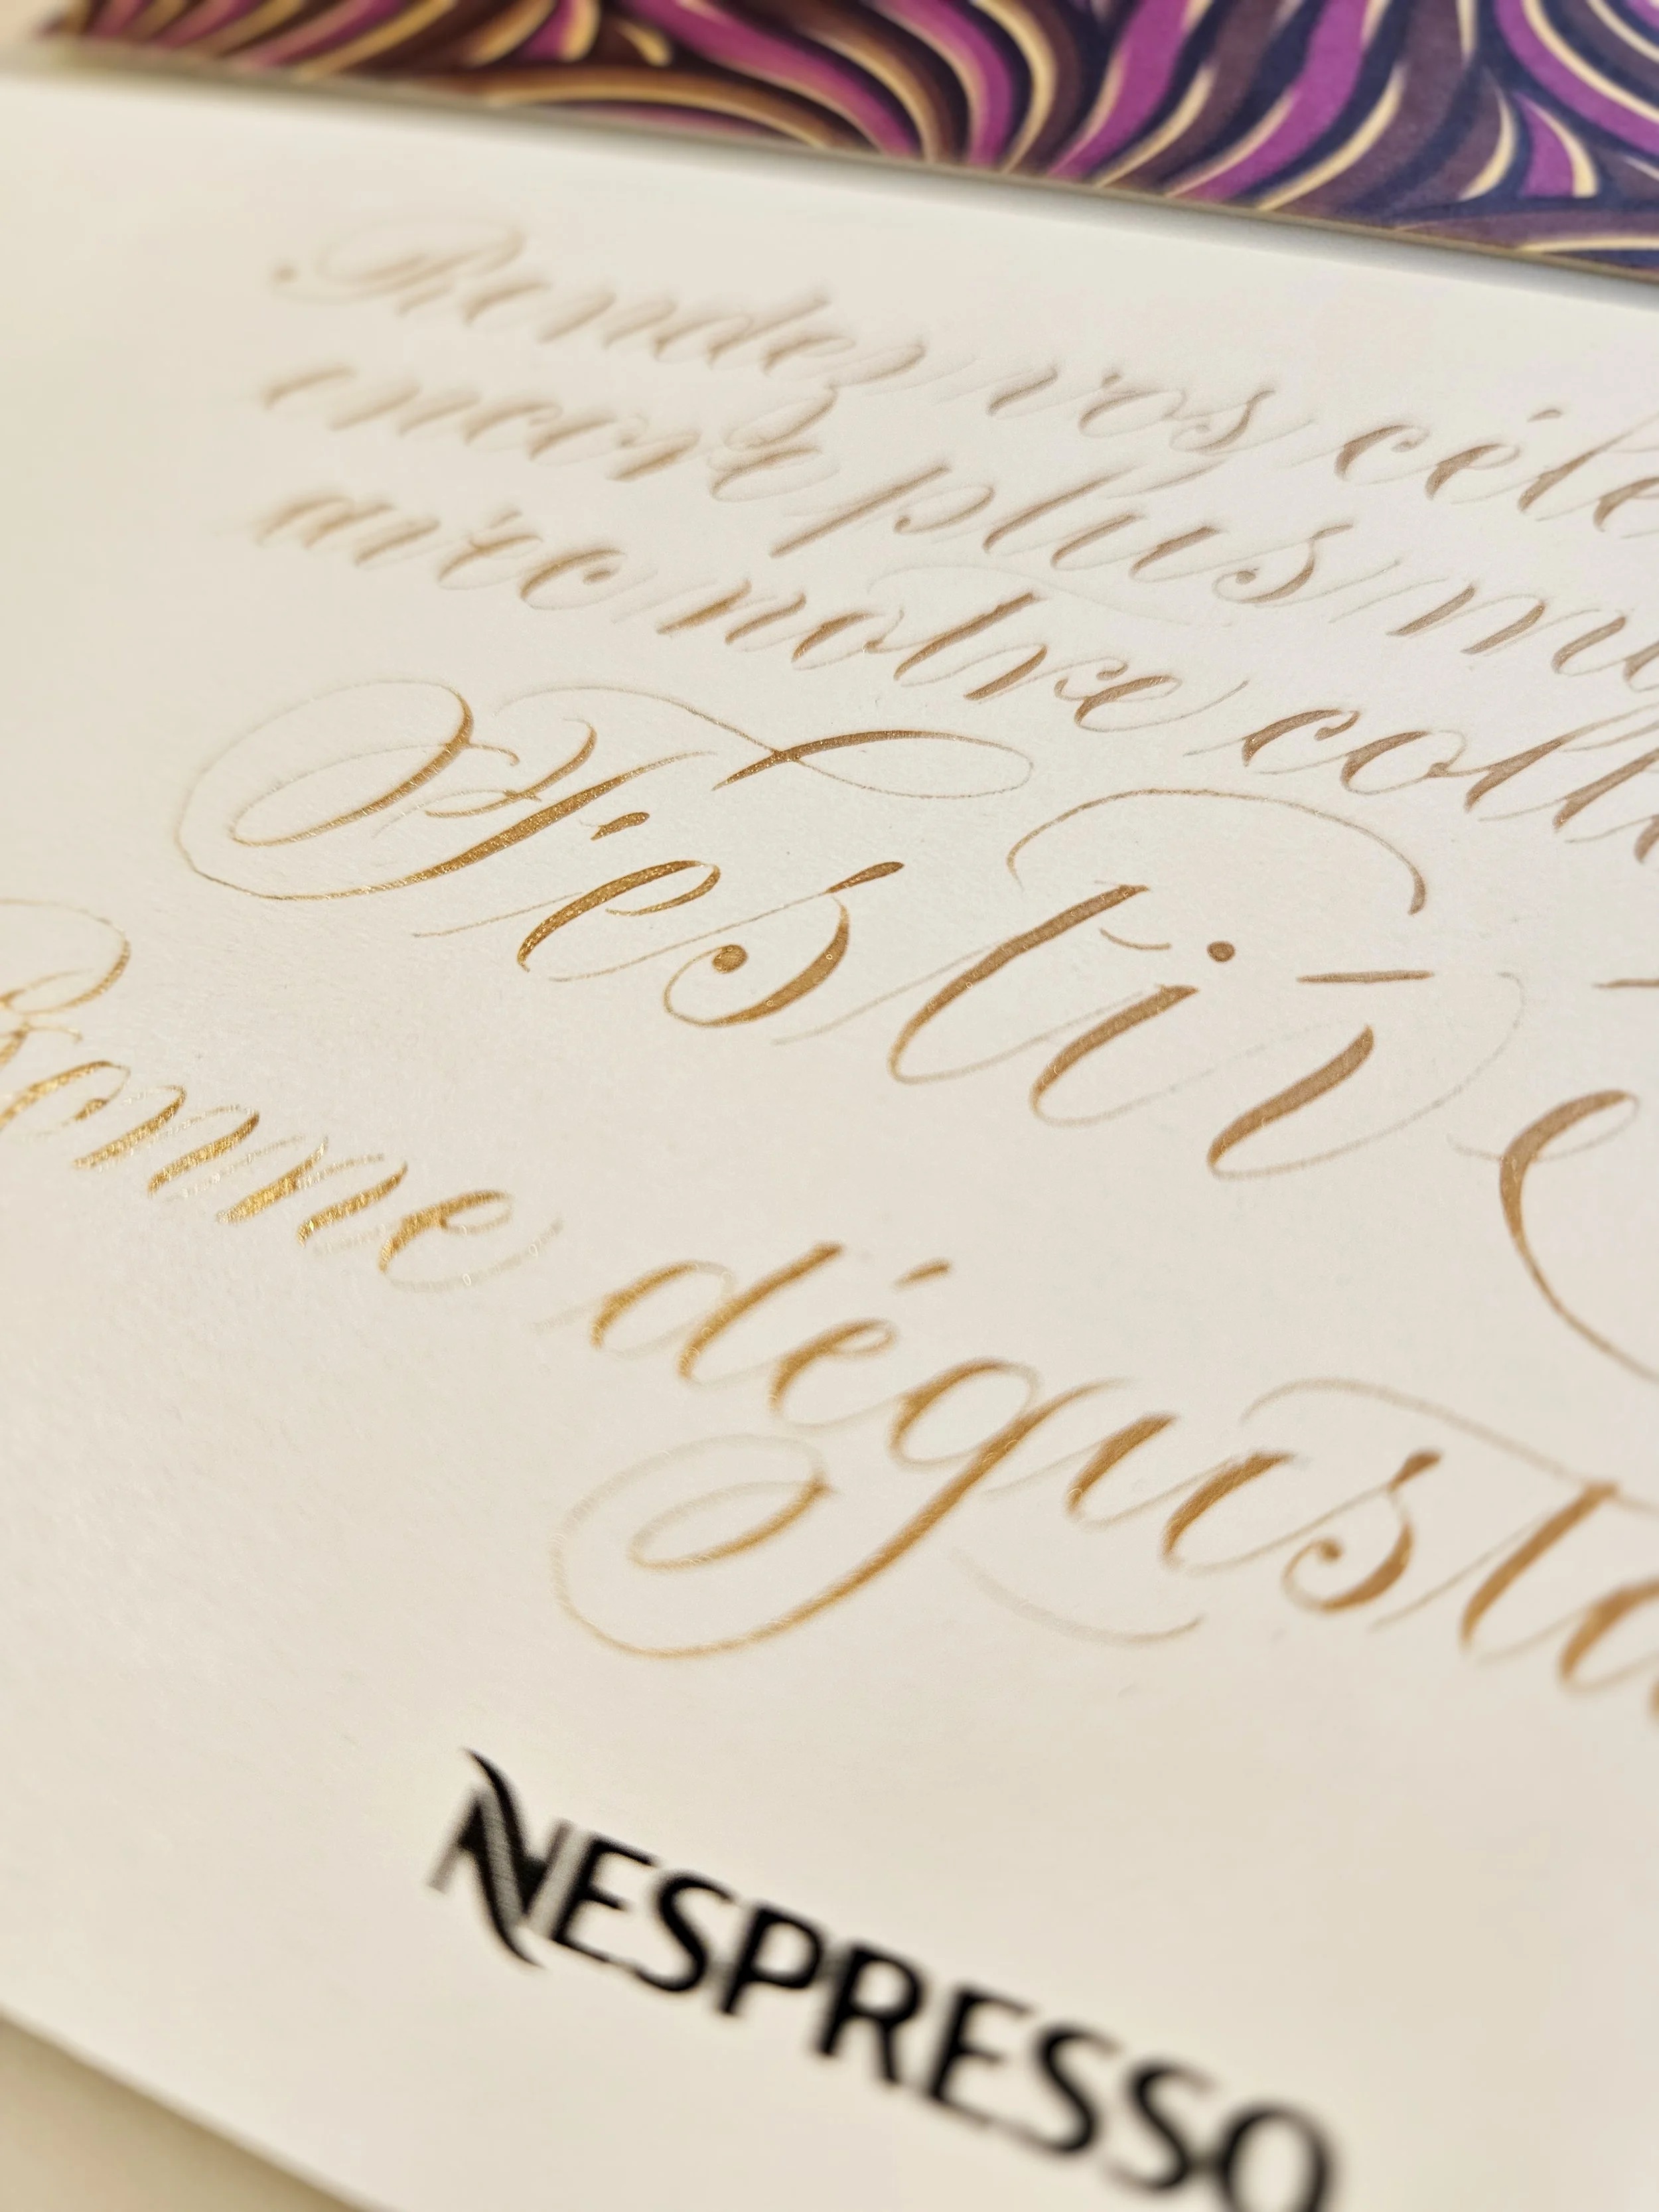 Rendez vos célé
encore plus m
avec notre coll
Festive
Bonne dégusta
NESPRESSO